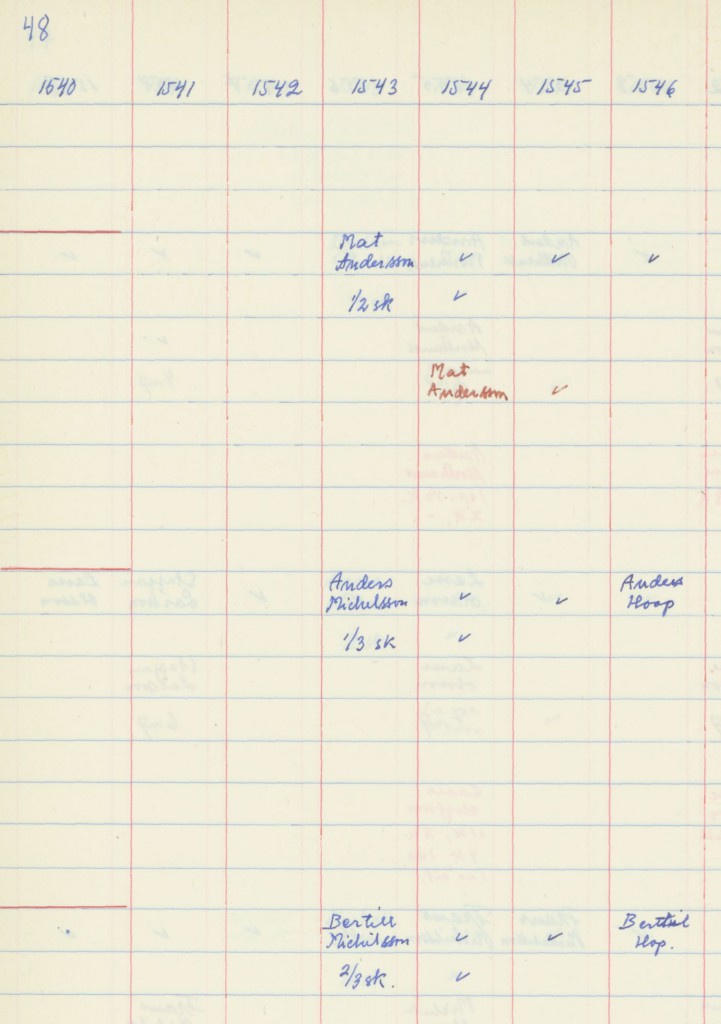 48
1540 1541 1542 1543 1544 1545 1546
Mat
Andersson ✓ ✓ ✓
1/2 sk ✓
Mat
Andersson ✓
Anders Anders
Michelsson ✓ ✓ Hoop
1/3 sk ✓
Bertill Berttil
Michilsson ✓ ✓ Hop.
2/3 sk. ✓